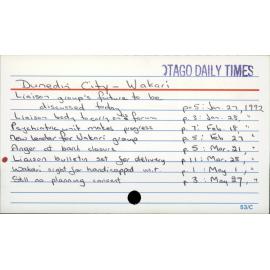 OTAGO DAILY TIMES
Dunedin City - Wakari
Liaison group's future to be
discussed today p.5: Jan. 27, 1992
Liaison body to carry on forum p.3: Jan. 28, "
Psychiatric unit makes progress p.7: Feb. 18, "
New leader for Wakari group p.5: Feb 27 "
Anger at bank closure p.5: Mar. 21, "
Liaison bulletin set for delivery p.11: Mar. 28, "
Wakari sight for handicapped unit p.1: May 1, "
Still no planning consent p.3: May 27, "
53/C